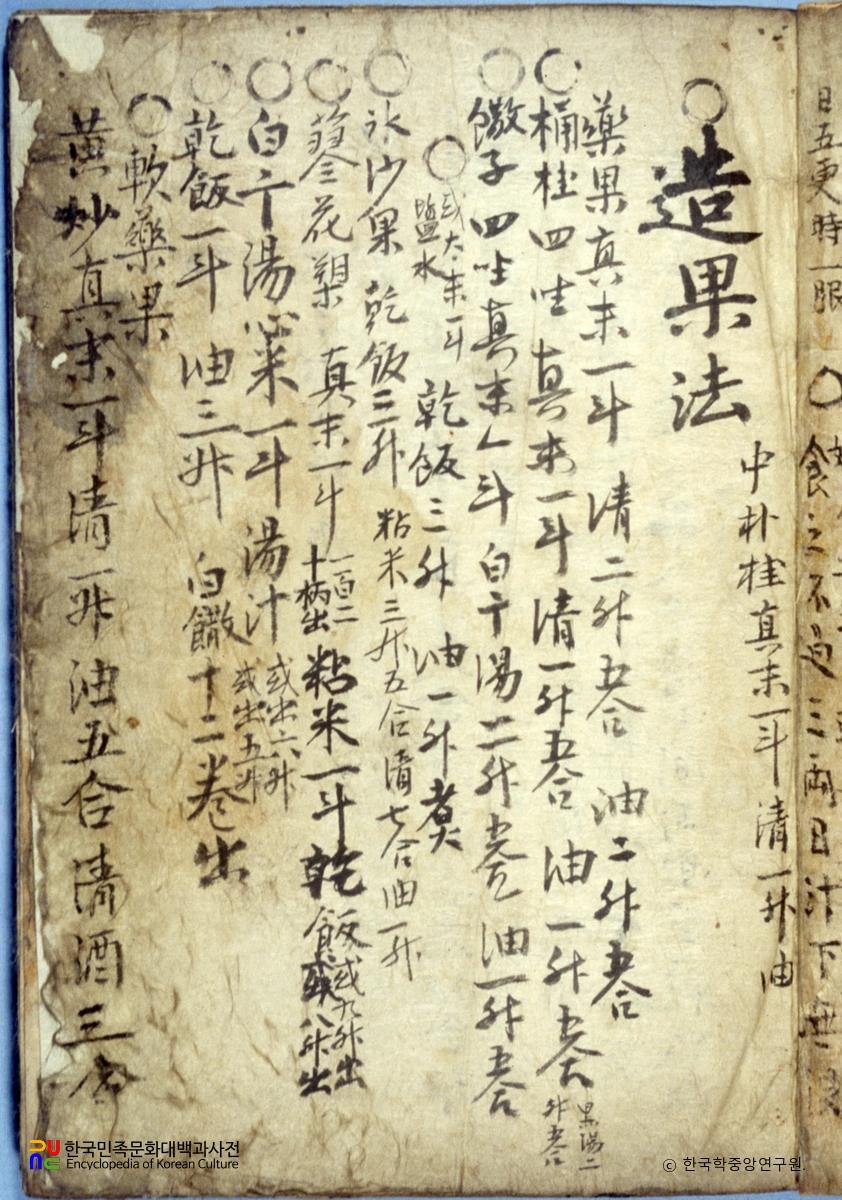 造果法
中朴桂真末一斗 清一升 油
藥果真末一斗 清二升五合 油二升五合
桶桂四坐真末一斗 清一升五合 油一升五合 黑湯二升五合
饊子四坐真末一斗 白干湯二升五合 油一升五合
或太末一斗 鹽水 乾飯三升 油一升煮
氷沙果 乾飯三升 粘米三升五合 清七合 油一升
蓼花槊 真末一斗 一百二十柄出 粘米一斗 乾飯 或九升出 或八升出
白干湯 心米一斗 湯汁 或出六升 或出五升
乾飯一斗 油三升 白饊十二卷出
軟藥果
黃炒真末一斗 清一升 油五合 清酒三合
日五更時一服
食之不過三兩日汁下無
한국민족문화대백과사전
Encyclopedia of Korean Culture
© 한국학중앙연구원.